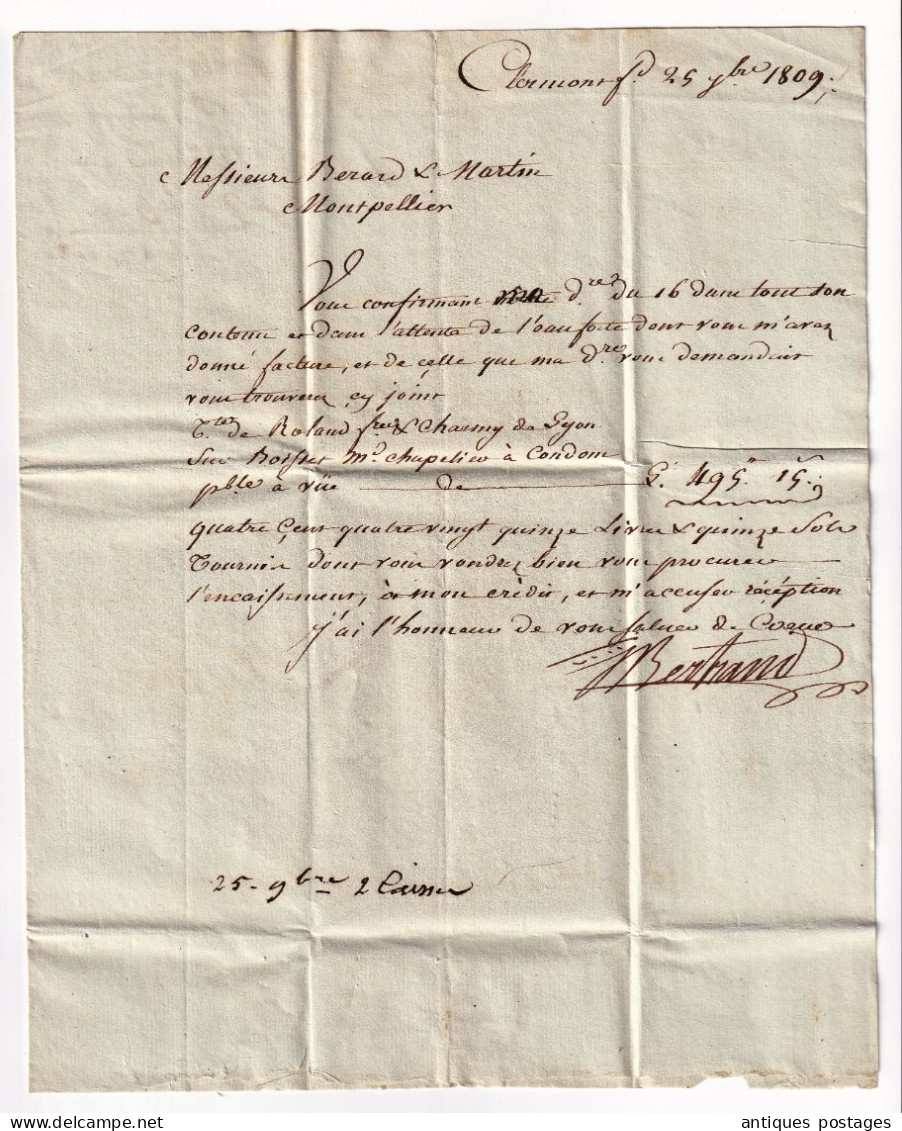 Clermont fd 25 9bre 1809
Messieurs Berard & Martin
Montpellier
Vous confirmant ma dre du 16 dans tout son
contenu et dans l'attente de l'eau forte dont vous m'avez
donné facture, et de celle que ma dre vous demandait
vous trouverez cy joint
tte de Roland fres & Charmy de Lyon
Sur Boissier md chapelier à Condom
pble à vüe de £ 495" 15s
quatre cent quatre vingt quinze Livres & quinze Sols
Tournois dont vous voudrez bien vous procurer
l'encaissement, à mon crédit, et m'accuser réception
j'ai l'honneur de vous saluer de Coeur
Bertrand
25 - 9bre 2 Caisses
antiques postages